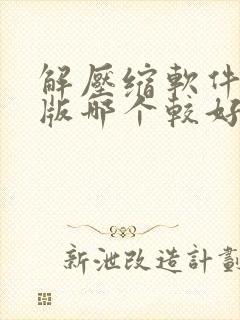 解壓缩軟件
版哪个較好
新泄改造計劃